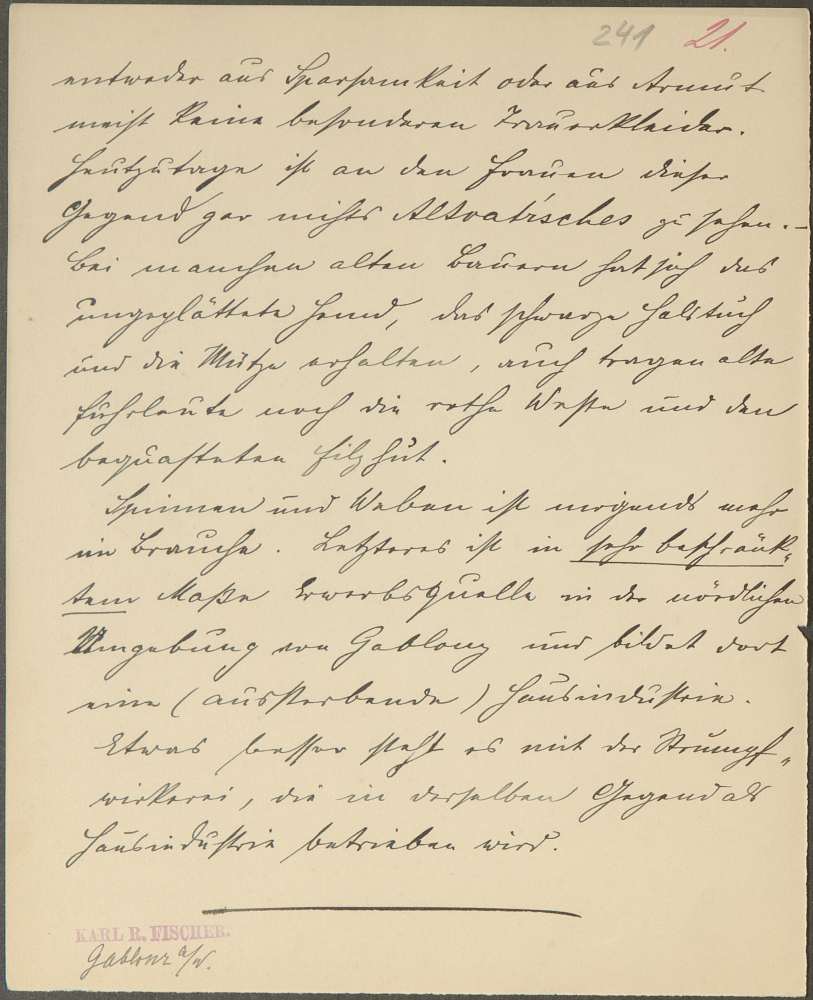 241 21.
entweder aus Sparsamkeit oder aus Armut
meist keine besonderen Trauerkleider.
Heutzutage ist an den Frauen dieser
Gegend gar nichts Altvatrisches zu sehen. –
Bei manchen alten Bauern hat sich das
ungeplättete Hemd, das schwarze Halstuch
und die Mütze erhalten, auch tragen alte
Fuhrleute noch die rothe Weste und den
bequasteten Filzhut.
Spinnen und Weben ist nirgends mehr
im Brauche. Letzteres ist in sehr beschränk-
tem Maße Erwerbsquelle in der nördlichen
Umgebung von Gablonz und bildet dort
eine (aussterbende) Hausindustrie.
Etwas besser steht es mit der Strumpf-
wirkerei, die in derselben Gegend als
Hausindustrie betrieben wird.
KARL R. FISCHER.
Gablonz a/N.